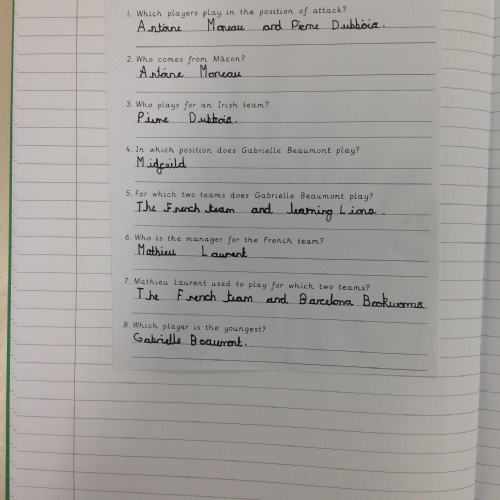 1. Which players play in the position of attack?
Antoine Moreau and Pierre Dubbois.
2. Who comes from Mâcon?
Antoine Moreau
3. Who plays for an Irish team?
Pierre Dubbois.
4. In which position does Gabrielle Beaumont play?
Midfeild
5. For which two teams does Gabrielle Beaumont play?
The French team and learning Lions.
6. Who is the manager for the French team?
Mathieu Laurent
7. Mathieu Laurent used to play for which two teams?
The French team and Barcelona Bookworms
8. Which player is the youngest?
Gabrielle Beaumont.